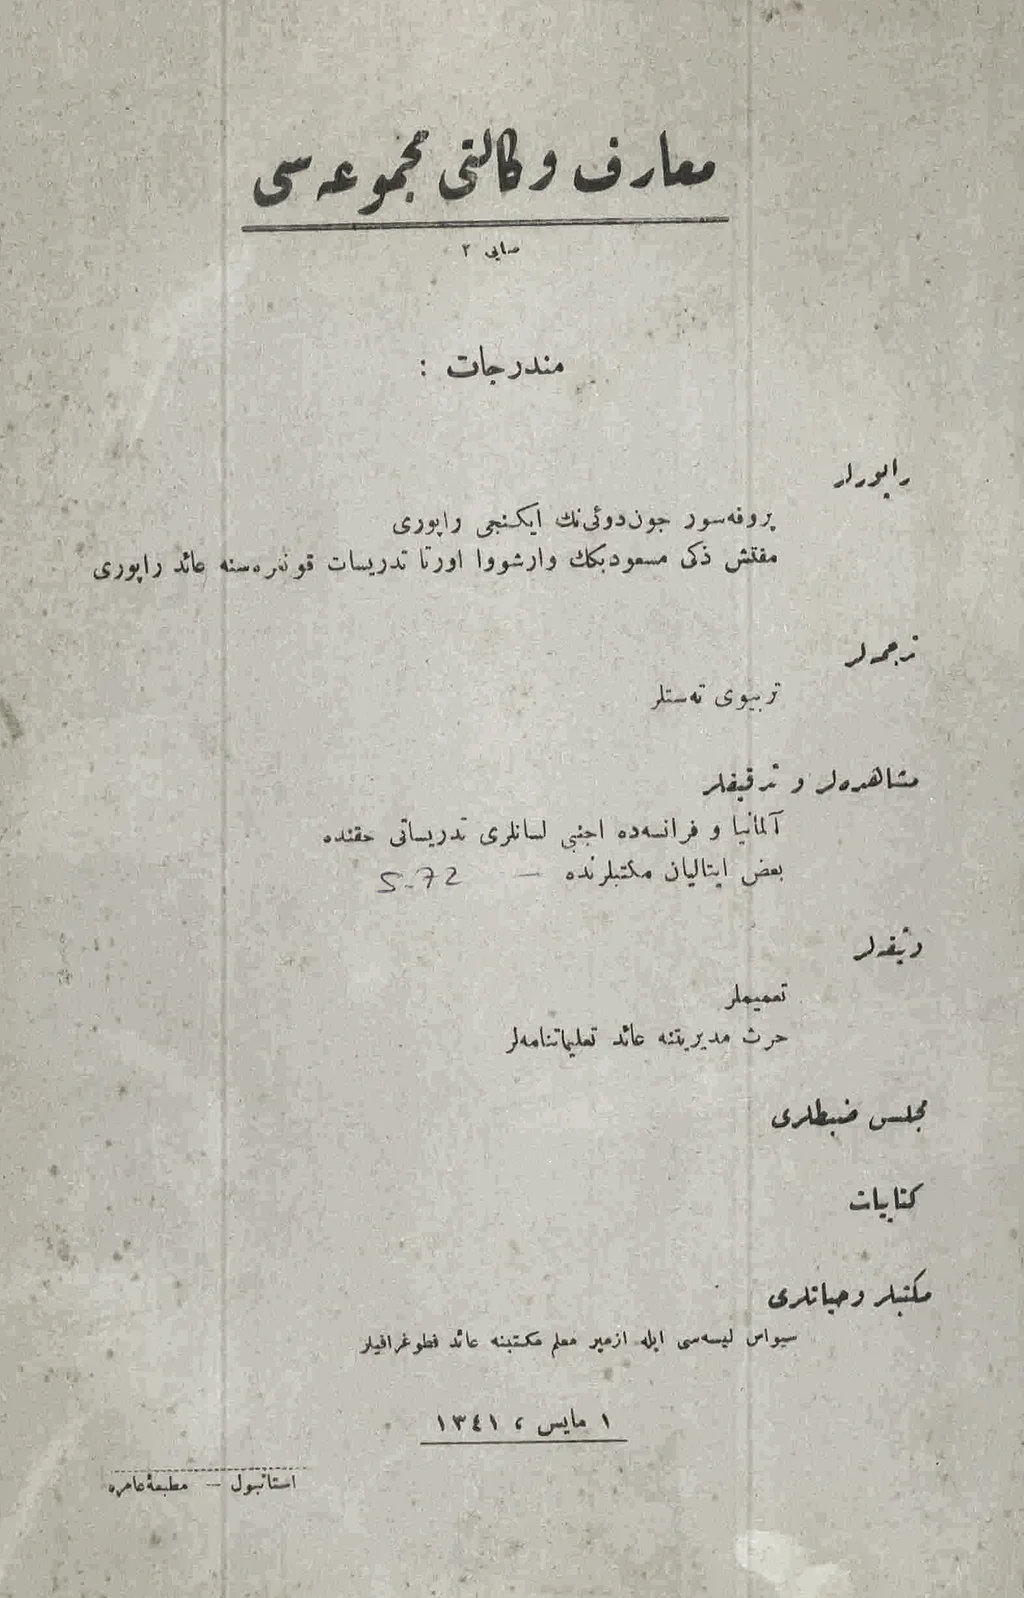 معارف وكالتی مجموعه‌سی
صایی ٢
مندرجات :
راپورلر
پروفه‌سور جون‌دوئی‌نك ایكنجی راپوری
مفتش ذكی مسعودبكك وارشووا اورتا تدریسات قونغره‌سنه عائد راپوری
ترجمه‌لر
تربیوی ته‌ستلر
مشاهده‌لر و تدقیقلر
آلمانیا و فرانسه‌ده اجنبی لسانلری تدریساتی حقنده
بعض ایتالیان مكتبلرنده — S-72
وثیقه‌لر
تعمیملر
حرث مدیریتنه عائد تعلیماتنامه‌لر
مجلس ضبطلری
كتابیات
مكتبلر وحیاتلری
سیواس لیسه‌سی ایله ازمیر معلم مكتبنه عائد فطوغرافیلر
١ مایس ، ١٣٤١
استانبول — مطبعهٔ عامره